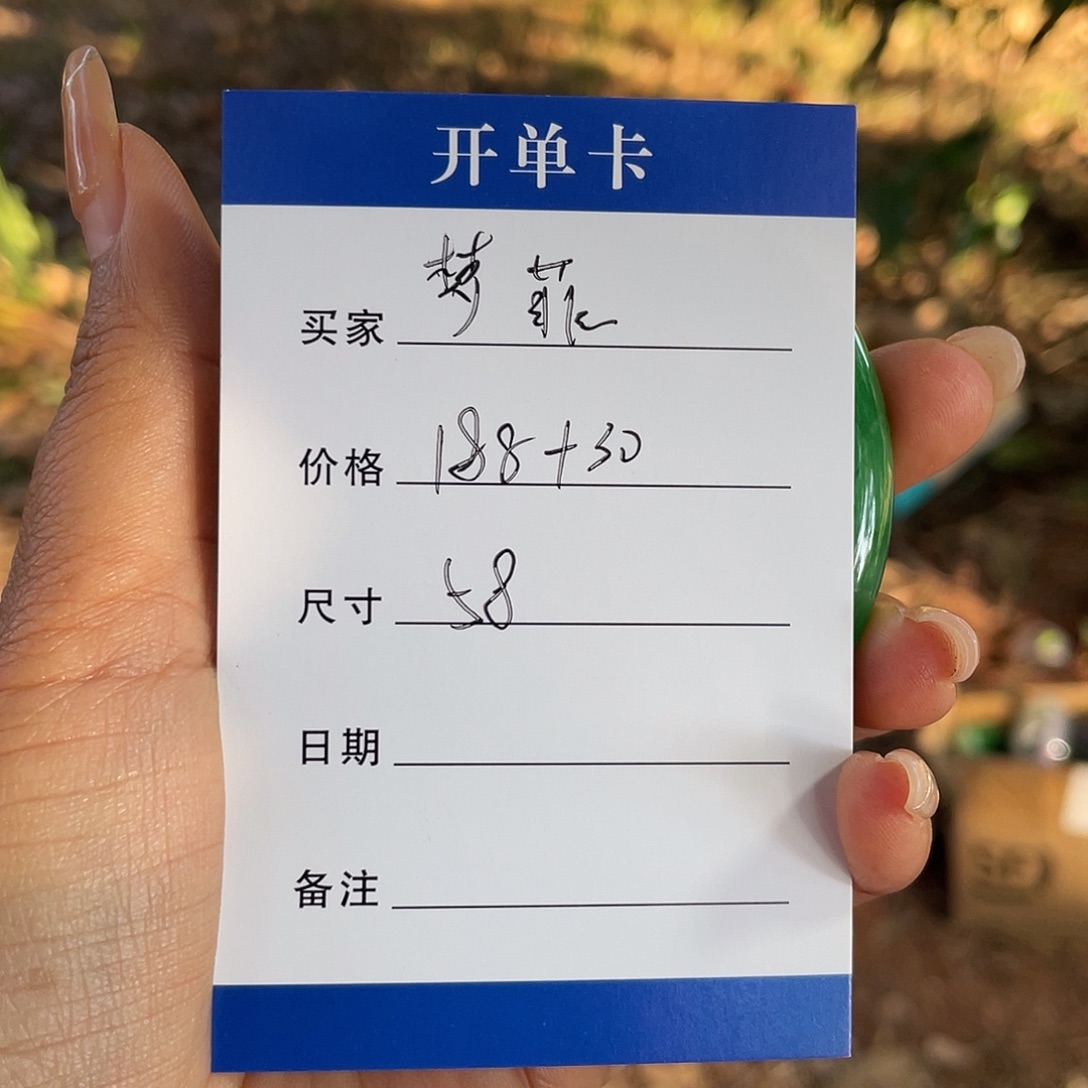 开单卡
买家 梦菲
价格 188+30
尺寸 58
日期
备注